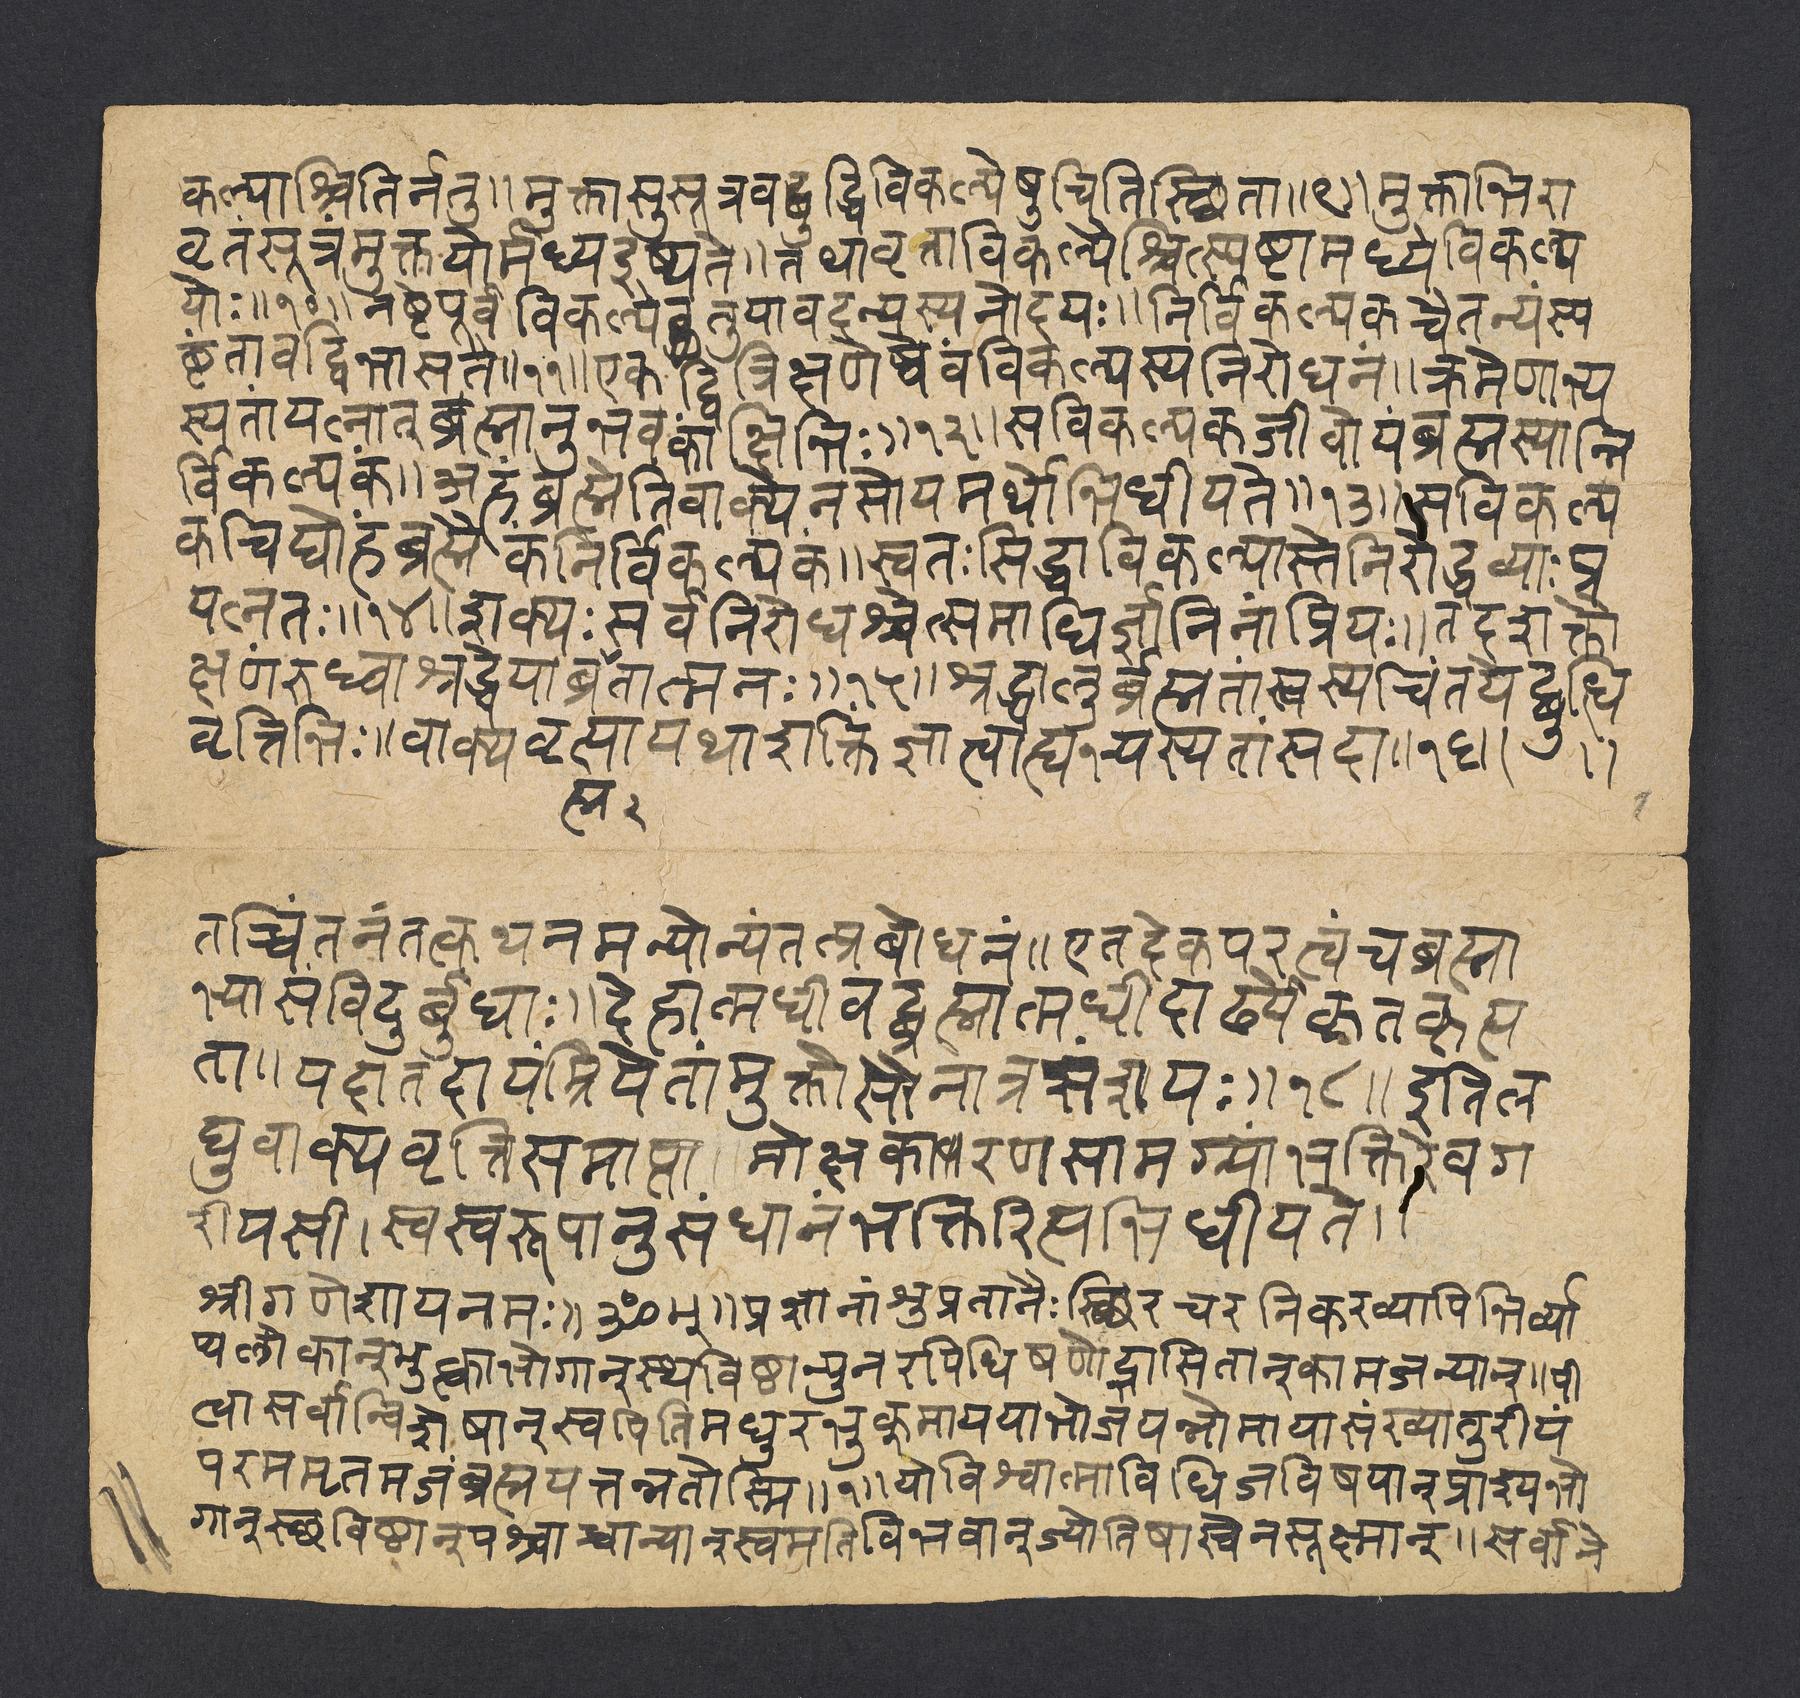 कल्पाश्चितिर्नतु॥ मुक्तासुसूत्रवद्बुद्धिविकल्पेषुचितिस्छिता॥९॥ मुक्ताभिरा
वृतंसूत्रंमुक्तयोर्मध्यईष्यते॥ तथावृत्ताविकल्पैश्चित्स्पष्टामध्येविकल्प
योः॥१०॥ नष्टेपूर्वविकल्पेतुयावदन्यस्यनोदयः॥ निर्विकल्पकचैतन्यंस्प
ष्टंतावद्विभासते॥११॥ एकद्वित्रिक्षणेष्वेवंविकल्पस्यनिरोधनं॥ क्रमेणाभ्य
स्यतांयत्नात्ब्रह्मानुभवकांक्षिभिः॥१२॥ सविकल्पकजीवोयंब्रह्मस्यान्नि
र्विकल्पकं॥ अहंब्रह्मेतिवाक्येनसोयमर्थोभिधीयते॥१३॥ सविकल्प
कचिद्योहंब्रह्मैकंनिर्विकल्पकं॥ स्वतःसिद्धाविकल्पास्तेनिरोद्धव्याःप्र
यत्नतः॥१४॥ शक्यःसर्वनिरोधश्चेत्समाधिर्ज्ञानिनांप्रियः॥ तदशक्तो
क्षणंरुध्वाश्रद्धेयाब्रतात्मनः॥१५॥ श्रद्धालुर्ब्रह्मतांस्वस्यचिंतयेद्बुधि
वृत्तिभिः॥ वाक्यवृत्यायथाशक्तिंज्ञात्वाह्यभ्यस्यतांसदा॥१६॥ ॥
ह्म २
तच्चिंतनंतत्कथनमन्योन्यंतत्प्रबोधनं॥ एतदेकपरत्वंचब्रह्मा
भ्यासंविदुर्बुधाः॥ देहात्मधीवद्ब्रह्मात्मधीदार्ढ्येकृतकृत्य
ता॥ यदातदायंम्रियेतांमुक्तोसौनात्रसंशयः॥१८॥ इतिल
घुवाक्यवृत्तिसमाप्ता॥ मोक्षकारणसामग्र्यांभक्तिरेवग
रीयसी। स्वस्वरूपानुसंधानंभक्तिरित्यभिधीयते॥
श्रीगणेशायनमः॥ ॐम्॥ प्रज्ञानांश्रुप्रतानैःस्छिरचरनिकरव्यापिभिर्व्या
प्यलोकान्भुत्काभोगान्स्थविष्ठान्पुनरपिधिषणोद्भासितान्कामजन्यान्॥ पी
त्वासर्वान्विशेषान्स्वपितिमधुरभुकुमाययाभोजयन्नोमायासंख्यातुरीयं
परममृतमजंब्रह्मयत्तन्नतोस्मि॥१॥ योविश्वात्माविधिजविषयान्प्राश्यभो
गान्स्छविष्ठान्पश्चाच्चान्यान्स्वमतिविभवान्ज्योतिषास्वेनसूक्ष्मान्॥ सर्वाने